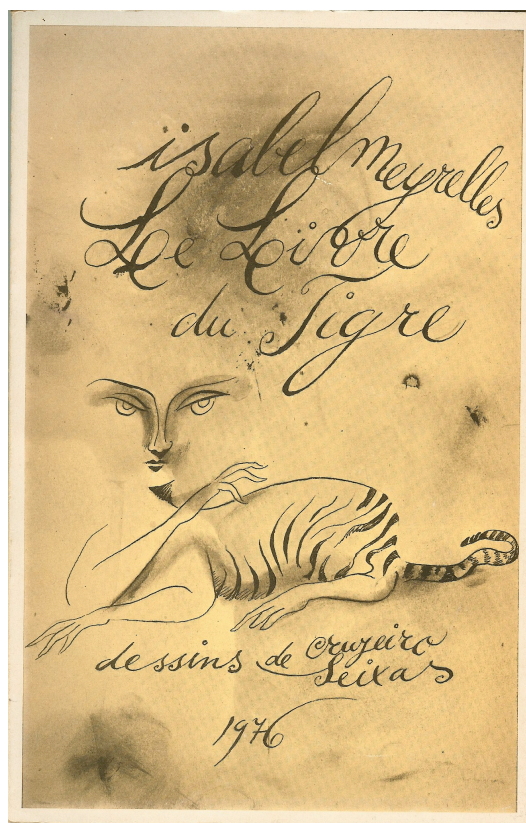 isabel Meyrelles
Le Livre
du Tigre
dessins de Cruzeiro
Seixas
1976